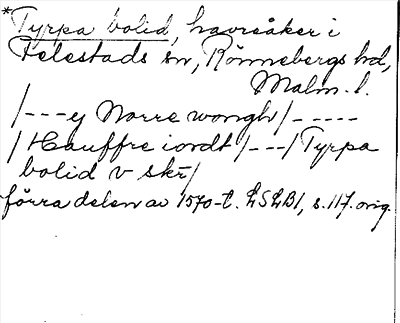 *Tyrpa bolid, havreåker i
Felestads sn, Rönnebergs hd,
Malm. l.
/---ey Norre wongh/-----
/Hauffre iordt/---/Tyrpa
bolid v skr/
förra delen av 1570-t. LSLB1, s.117. orig.